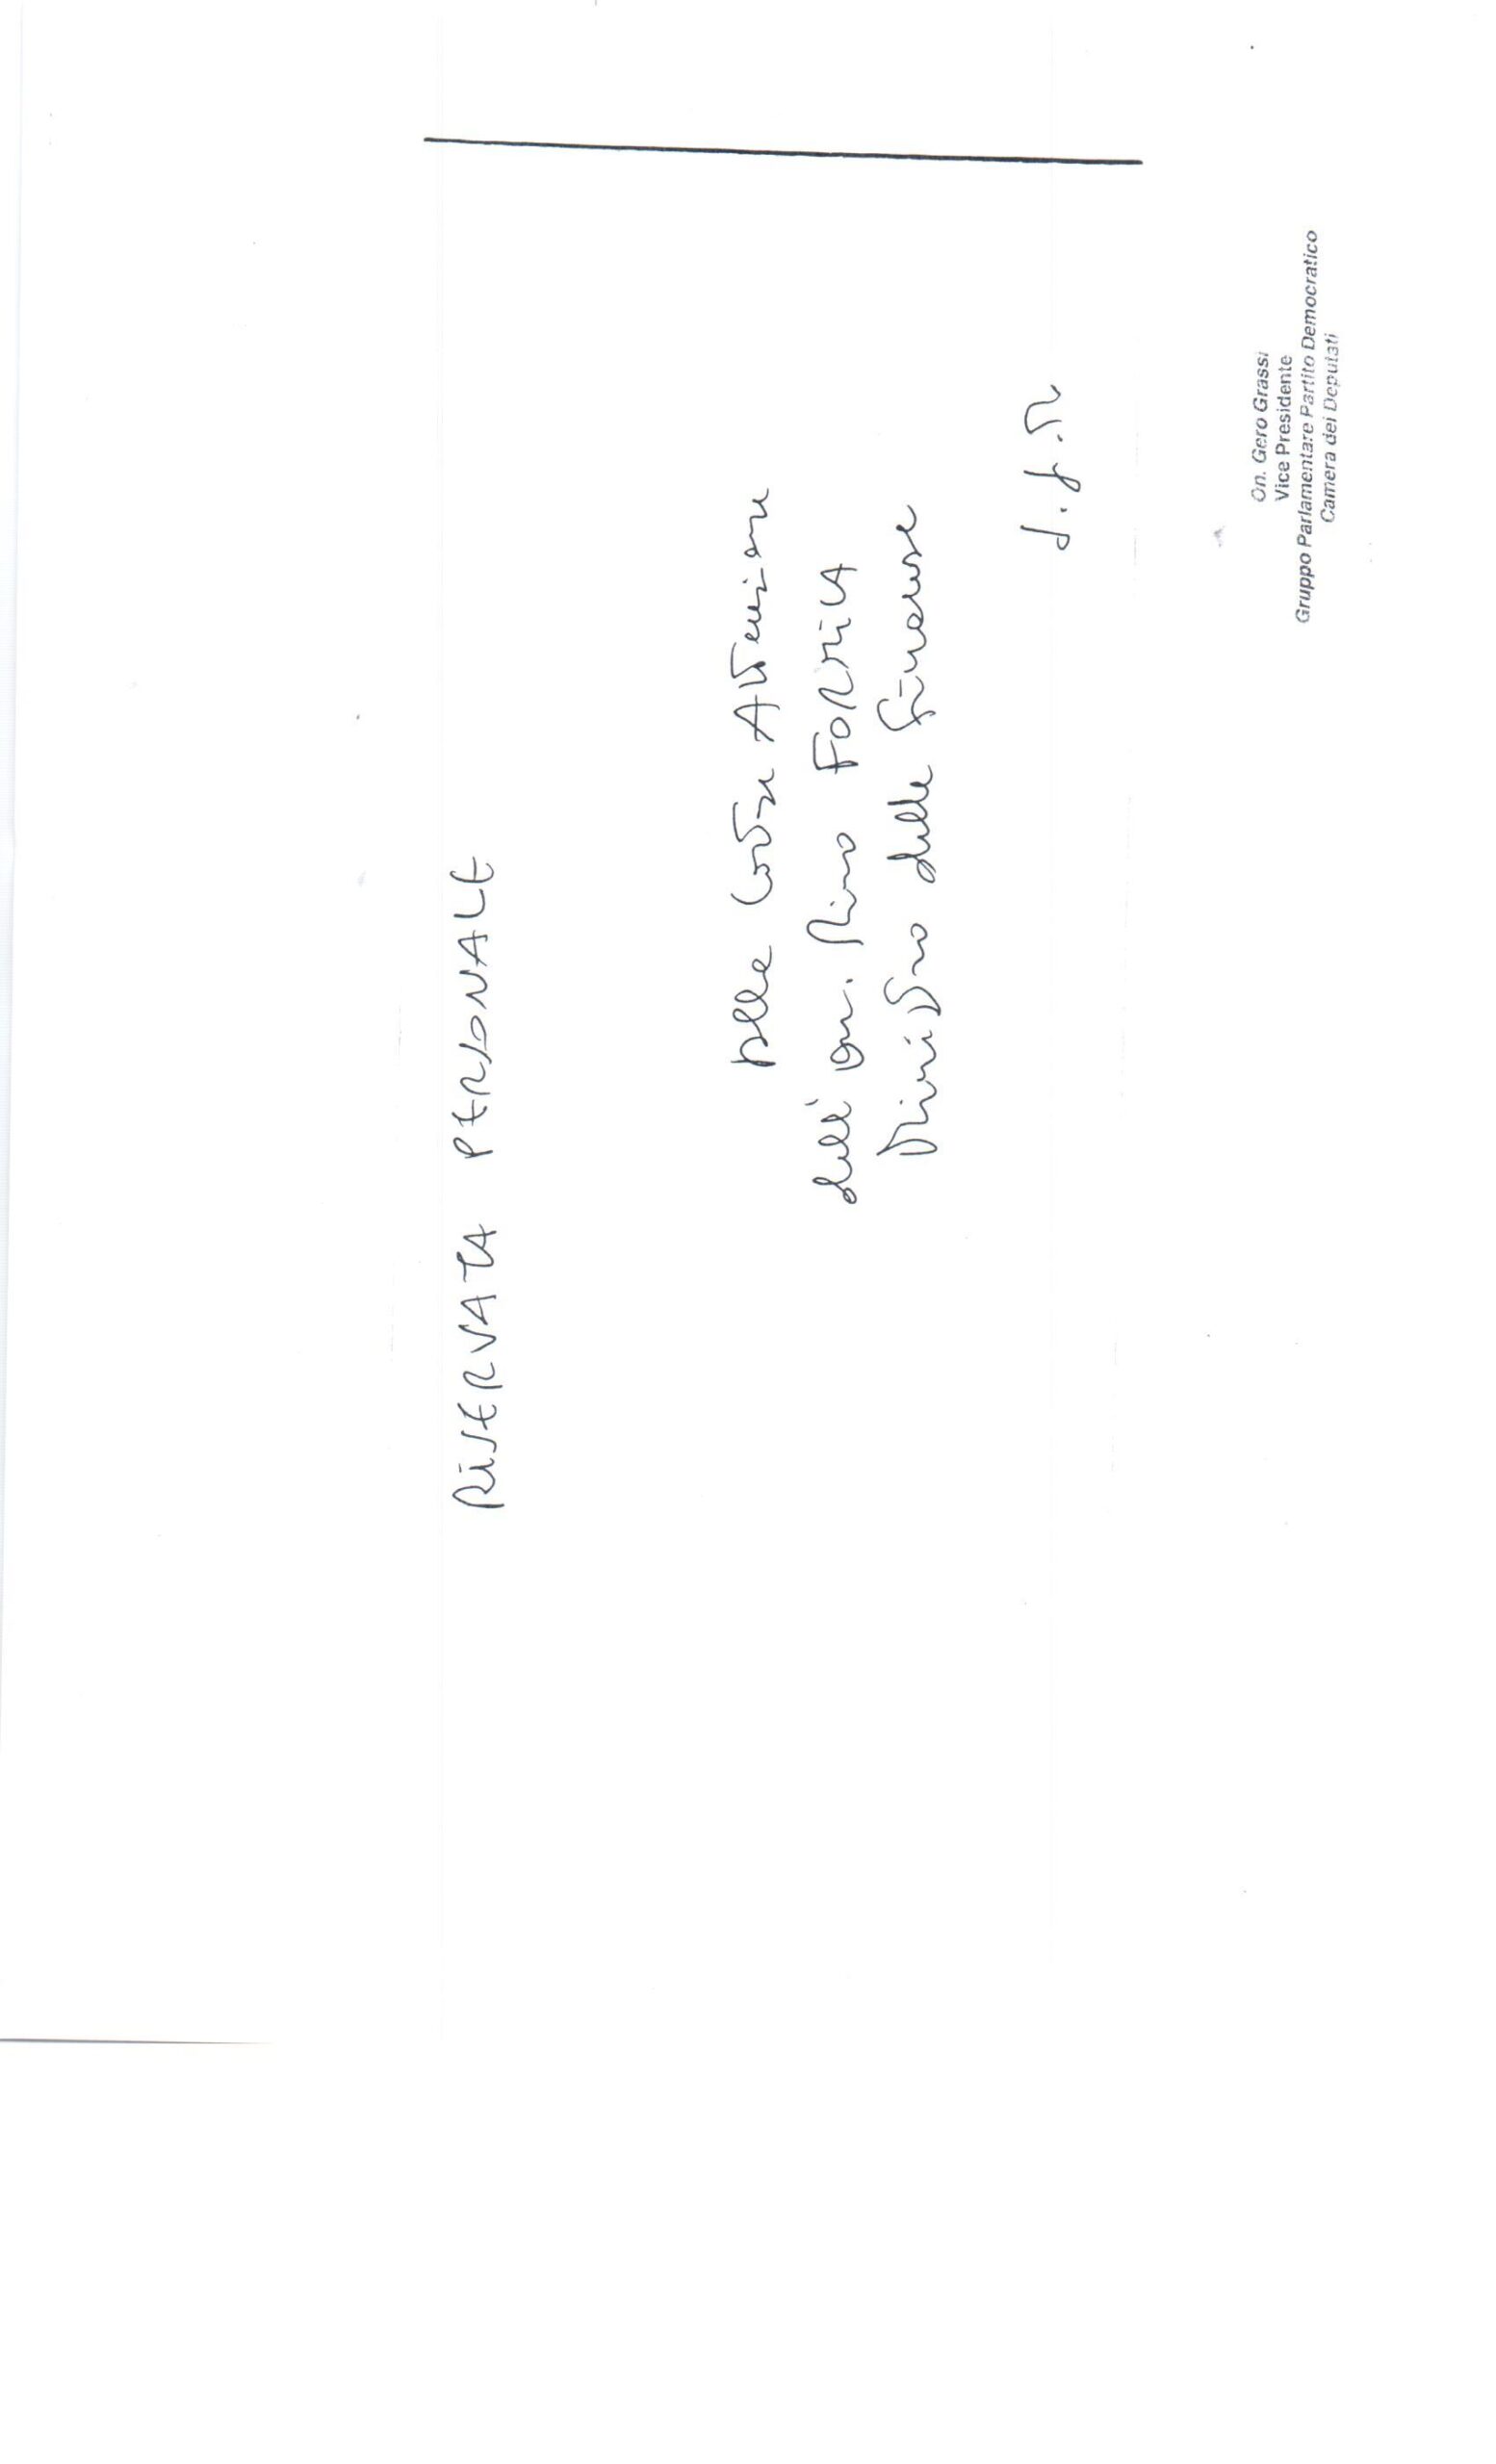 RISERVATA PERSONALE
Alla Cortese Attenzione
dell'on. Rino FORMICA
Ministro delle Finanze
S.G.M.
On. Gero Grassi
Vice Presidente
Gruppo Parlamentare Partito Democratico
Camera dei Deputati